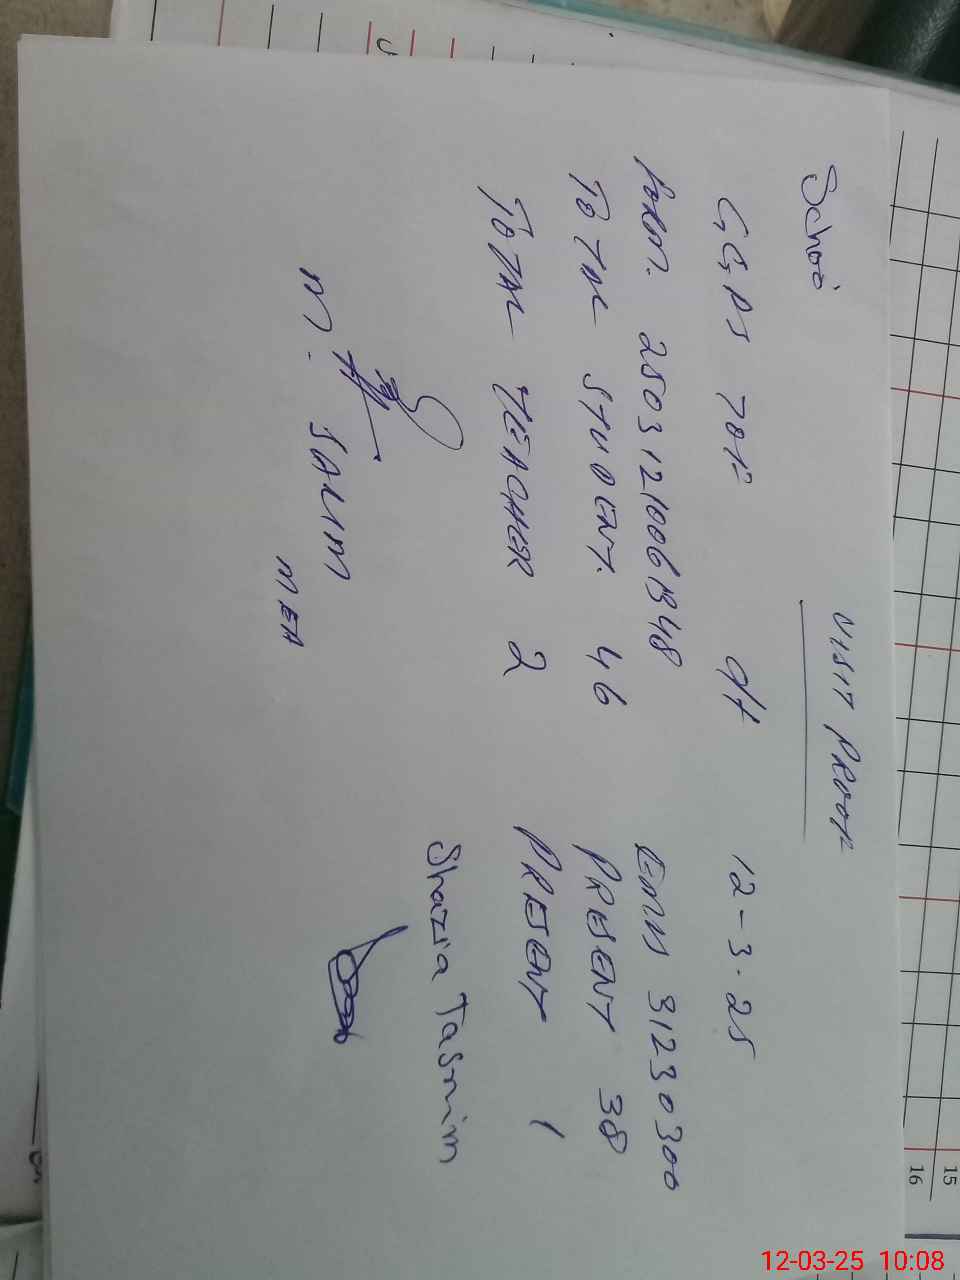 VISIT PROOF
School
GGPS TOP dt 12-3-25
FORM. 25031210061348 EMIS 31230300
TOTAL STUDENT. 46 PRESENT 38
TOTAL TEACHER 2 PRESENT 1
Shazia Tasnim
M. SALIM
MEA
15
16
12-03-25 10:08